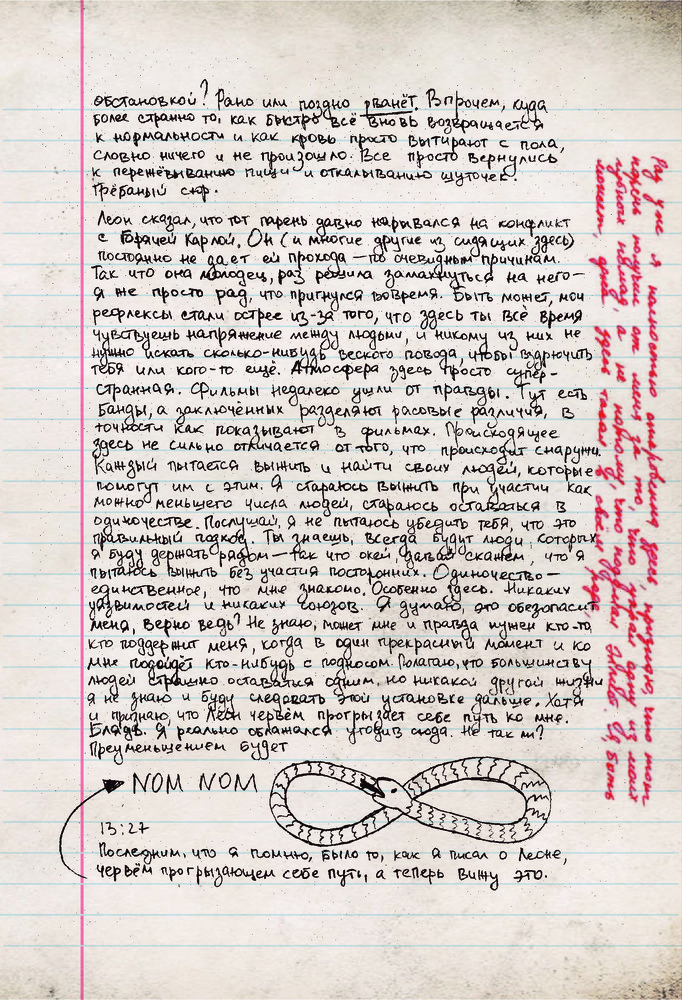 обстановкой? Рано или поздно рванёт. Впрочем, куда
более странно то, как быстро всё вновь возвращается
к нормальности и как кровь просто вытирают с пола,
словно ничего и не произошло. Все просто вернулись
к пережёвыванию пищи и откалыванию шуточек.
Грёбаный сюр.
Леон сказал, что тот парень давно нарывался на конфликт
с Горячей Карлой. Он (и многие другие из сидящих здесь)
постоянно не дает ей прохода — по очевидным причинам.
Так что она молодец, раз решила замахнуться на него —
я же просто рад, что пригнулся вовремя. Быть может, мои
рефлексы стали острее из-за того, что здесь ты всё время
чувствуешь напряжение между людьми, и никому из них не
нужно искать сколько-нибудь веского повода, чтобы вздрючить
тебя или кого-то ещё. Атмосфера здесь просто супер-
странная. Фильмы недалеко ушли от правды. Тут есть
банды, а заключённых разделяют расовые различия, в
точности как показывают в фильмах. Происходящее
здесь не сильно отличается от того, что происходит снаружи.
Каждый пытается выжить и найти своих людей, которые
помогут им с этим. Я стараюсь выжить при участии как
можно меньшего числа людей, стараюсь оставаться в
одиночестве. Послушай, я не пытаюсь убедить тебя, что это
правильный подход. Ты знаешь, всегда будут люди, которых
я буду держать рядом — так что окей, давай скажем, что я
пытаюсь выжить без участия посторонних. Одиночество —
единственное, что мне знакомо. Особенно здесь. Никаких
уязвимостей и никаких союзов. Я думаю, это обезопасит
меня, верно ведь? Не знаю, может мне и правда нужен кто-то,
кто поддержит меня, когда в один прекрасный момент и ко
мне подойдёт кто-нибудь с подносом. Полагаю, что большинству
людей страшно оставаться одним, но никакой другой жизни
я не знаю и буду следовать этой установке дальше. Хотя
и признаю, что Леон червём прогрызает себе путь ко мне.
Блядь. Я реально облажался, угодив сюда. Не так ли?
Преуменьшением будет
NOM NOM
13:27
Последним, что я помню, было то, как я писал о Леоне,
червём прогрызающем себе путь, а теперь вижу это.
Раз уже я полностью откровенна здесь, признаю, что тот
парень получил от меня за то, что украл одну из моих
губных помад, а не потому, что подбивал
может, друга здесь такая